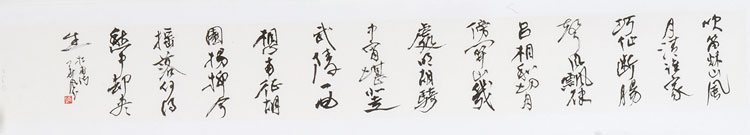 吹笛秋山風
月清誰家
巧作断腸
聲風飄律
呂相和切月
傍關山幾
處明胡騎
中宵堪北走
武陵一曲
想南征故
園楊柳今
搖落何得
愁中却尽
生